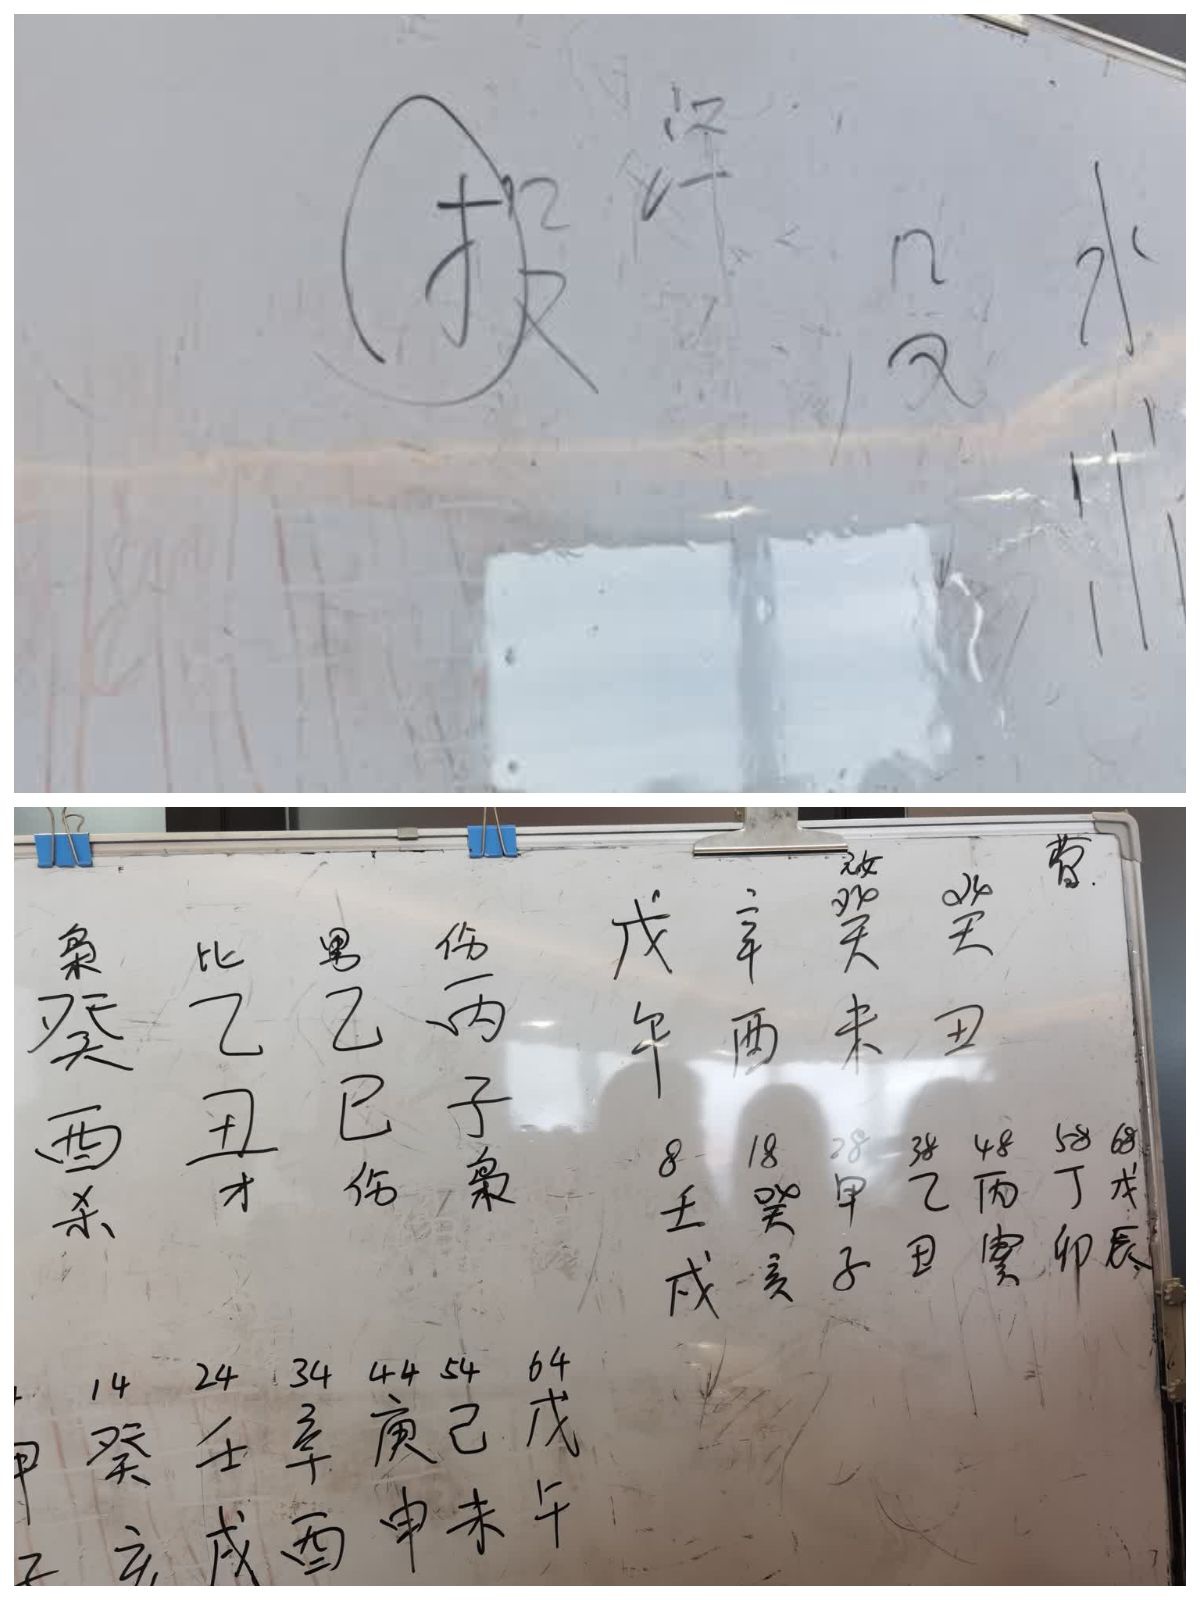 投 殳 水
曹
枭 比 男 伤
癸 乙 乙 丙
酉 丑 巳 子
杀 才 伤 枭
戊 辛 癸 癸
午 酉 未 丑
8 18 28 38 48 58 68
壬 癸 甲 乙 丙 丁 戊
戌 亥 子 丑 寅 卯 辰
14 24 34 44 54 64
甲 癸 壬 辛 庚 己 戊
子 亥 戌 酉 申 未 午